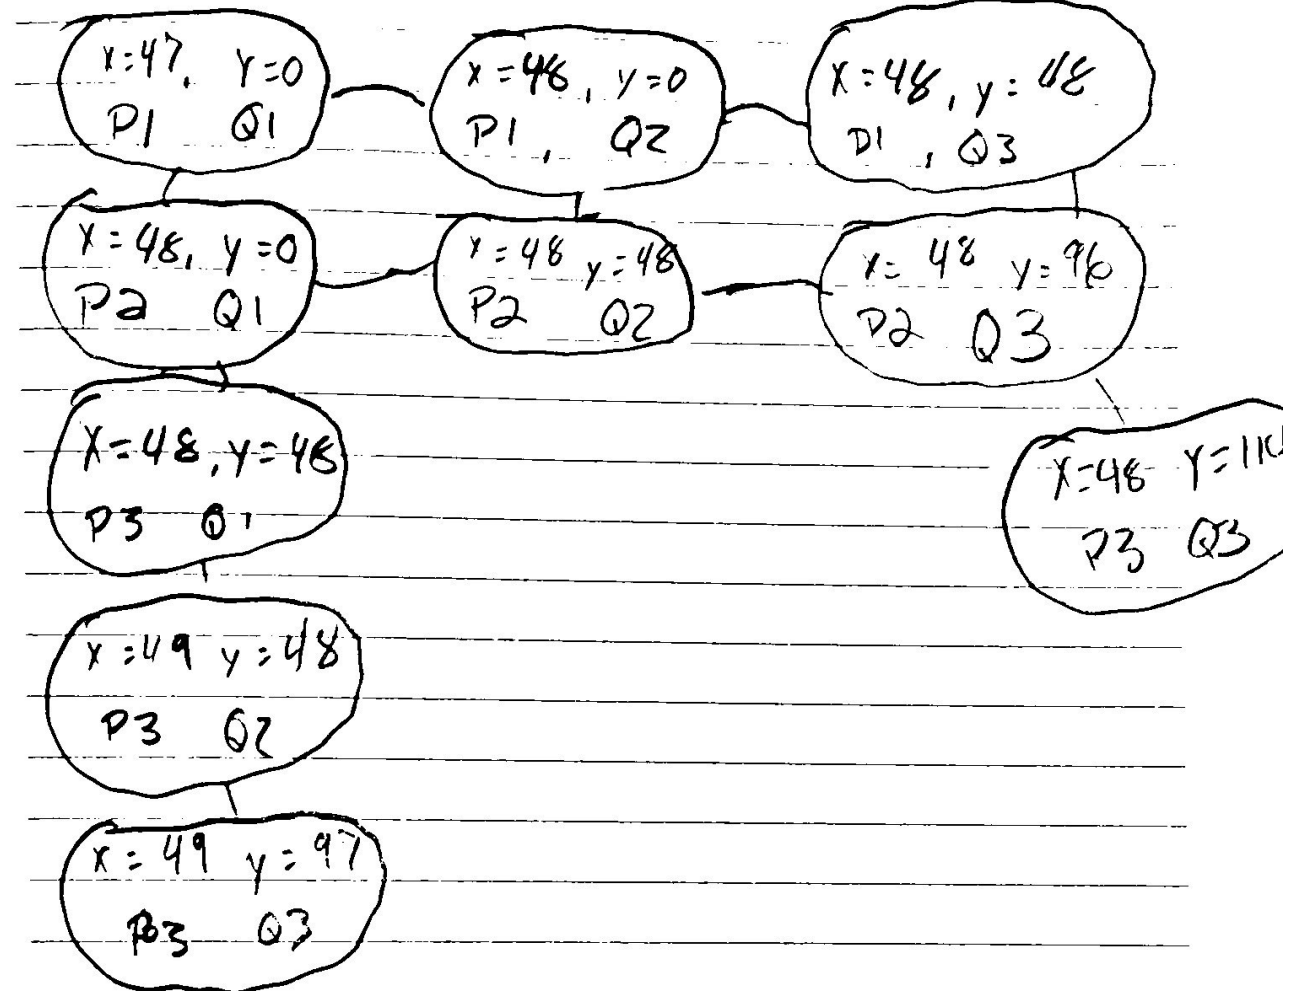 x=47, Y=0
P1 Q1
x=48, y=0
P1, Q2
x=48, y=48
P1, Q3
x=48, y=0
P2 Q1
x=48 y=48
P2 Q2
x=48 y=96
P2 Q3
x=48, y=48
P3 Q1
x=48 Y=
P3 Q3
x=49 y=48
P3 Q2
x=49 y=97
P3 Q3